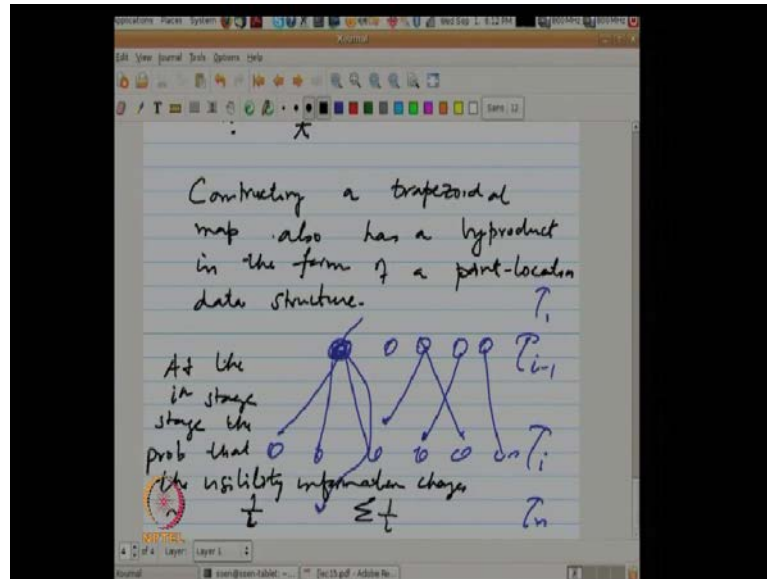 Applications Places System Wed Sep 1, 6:12 PM 800 MHz 800 MHz
Xournal
Edit View Journal Tools Options Help
Sans 12
π
Constructing a trapezoidal
map also has a byproduct
in the form of a point-location
data structure.
T1
Ti-1
At the
ith stage
stage the
prob that Ti
the visibility information changes
~ 1/i Σ 1/i Tn
NPTEL
4 of 4 Layer: Layer 1
Xournal ssen@ssen-tablet: ~... [lec15.pdf - Adobe Re...